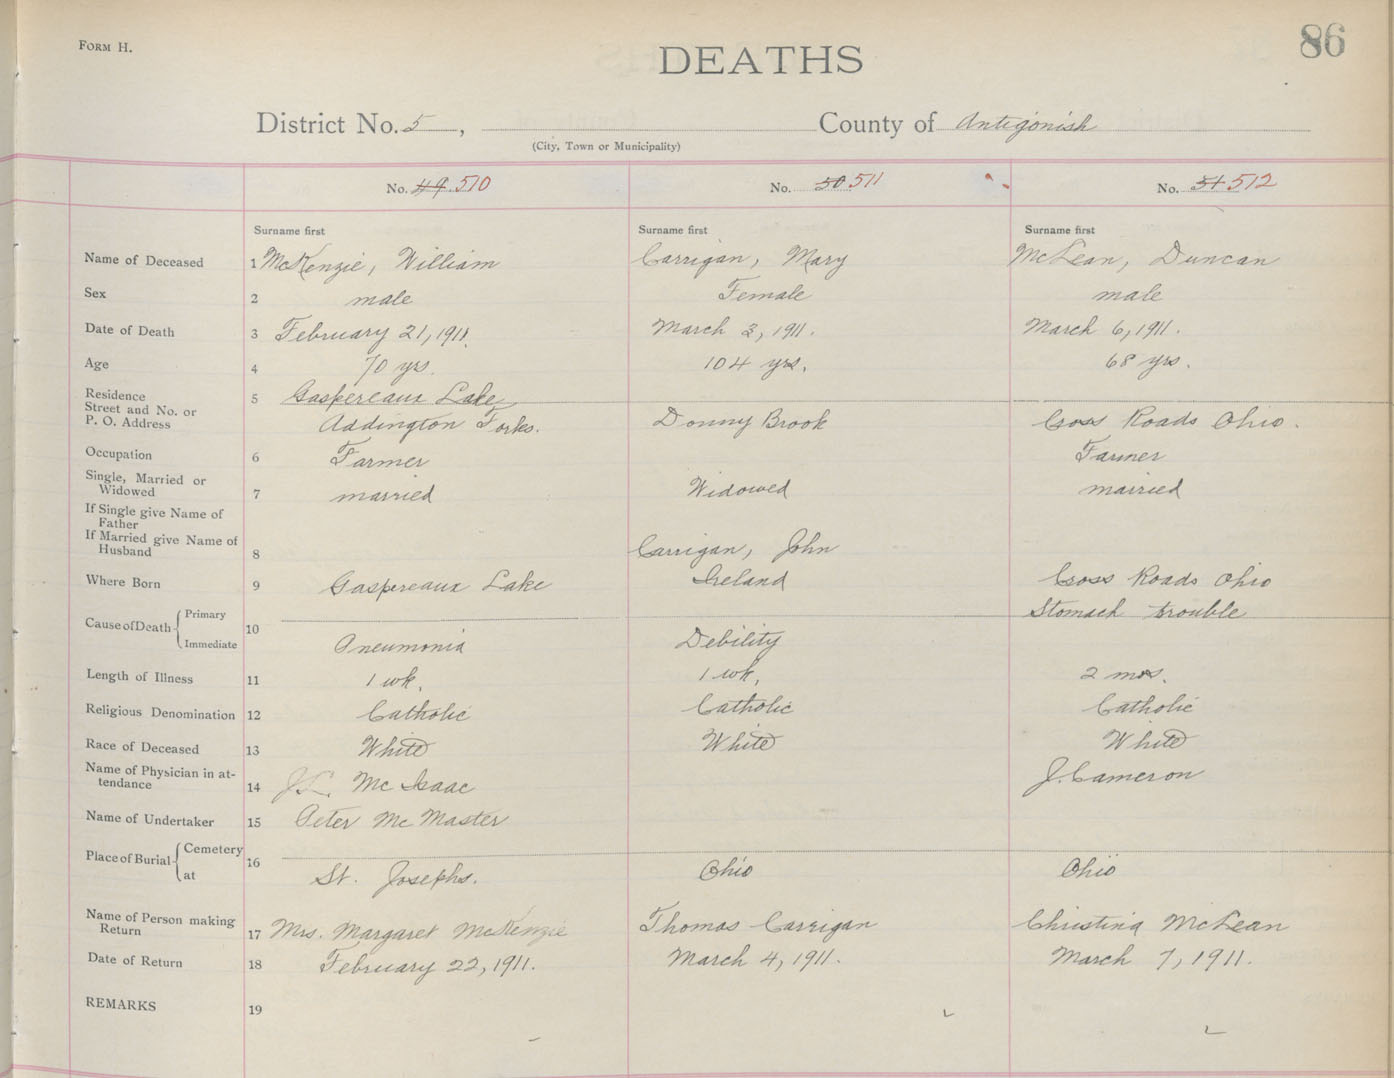 FORM H.
86
DEATHS
District No. 5, County of Antigonish
(City, Town or Municipality)
No. 49 510 No. 50 511 No. 51 512
Surname first Surname first Surname first
Name of Deceased 1 McKenzie, William Carrigan, Mary McLean, Duncan
Sex 2 male Female male
Date of Death 3 February 21, 1911. March 3, 1911. March 6, 1911.
Age 4 70 yrs. 104 yrs. 68 yrs.
Residence 5 Gaspereaux Lake
Street and No. or
P. O. Address Addington Forks. Donny Brook Cross Roads Ohio.
Occupation 6 Farmer Farmer
Single, Married or
Widowed 7 married Widowed married
If Single give Name of
Father
If Married give Name of
Husband 8 Carrigan, John
Where Born 9 Gaspereaux Lake Ireland Cross Roads Ohio
Cause of Death 10 Primary Stomach trouble
Immediate Pneumonia Debility
Length of Illness 11 1 wk. 1 wk. 2 mos.
Religious Denomination 12 Catholic Catholic Catholic
Race of Deceased 13 White White White
Name of Physician in at-
tendance 14 McIsaac J. Cameron
Name of Undertaker 15 Peter McMaster
Place of Burial 16 Cemetery
at St. Josephs. Ohio Ohio
Name of Person making
Return 17 Mrs. Margaret McKenzie Thomas Carrigan Christina McLean
Date of Return 18 February 22, 1911. March 4, 1911. March 7, 1911.
REMARKS 19